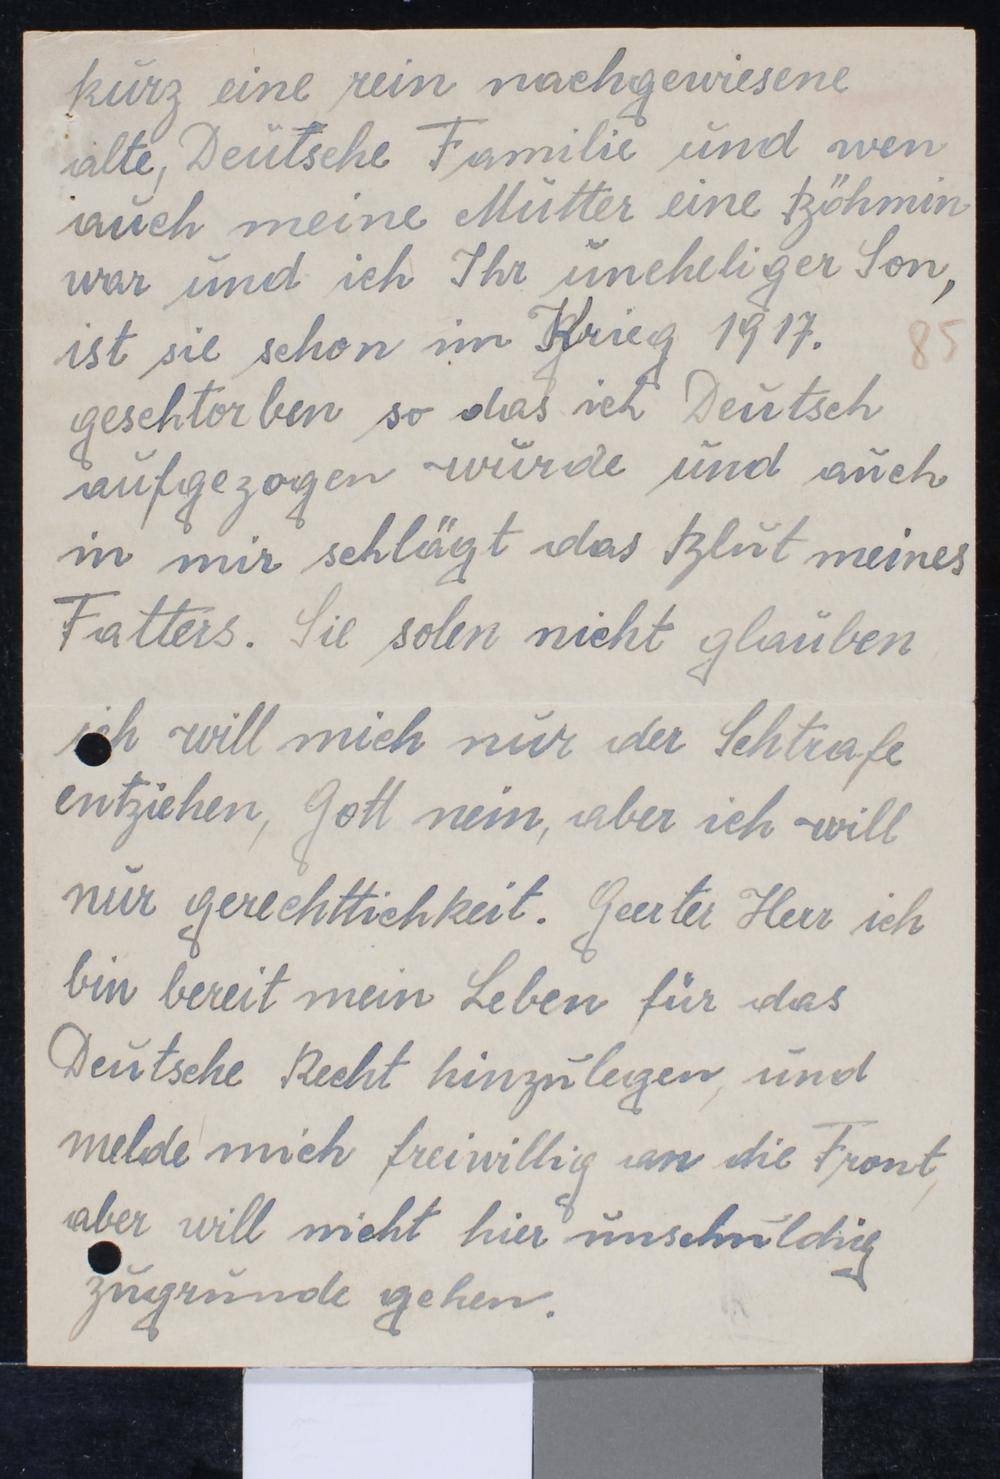 kurz eine rein nachgewiesene
alte, Deutsche Familie und wen
auch meine Mutter eine Böhmin
war und ich Ihr uneheliger Son,
ist sie schon im Krieg 1917.
85
geschtorben so das ich Deutsch
aufgezogen wurde und auch
in mir schlägt das Blut meines
Fatters. Sie solen nicht glauben
ich will mich nur der Schtrafe
entziehen, Gott nein, aber ich will
nur gerechttichkeit. Geerter Herr ich
bin bereit mein Leben für das
Deutsche Recht hinzulegen, und
melde mich freiwillig an die Front,
aber will nicht hier unschuldig
zugrunde gehen.